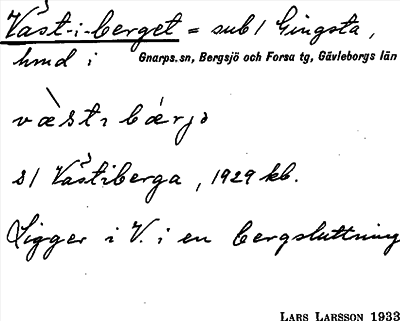 Väst-i-berget = sub/ Gingsta,
hmd i Gnarps.sn, Bergsjö och Forsa tg, Gävleborgs län
væ̀stɩ bǽrjɔ
s/ Västiberga, 1929 kb.
Ligger i V. i en bergsluttning
LARS LARSSON 1933